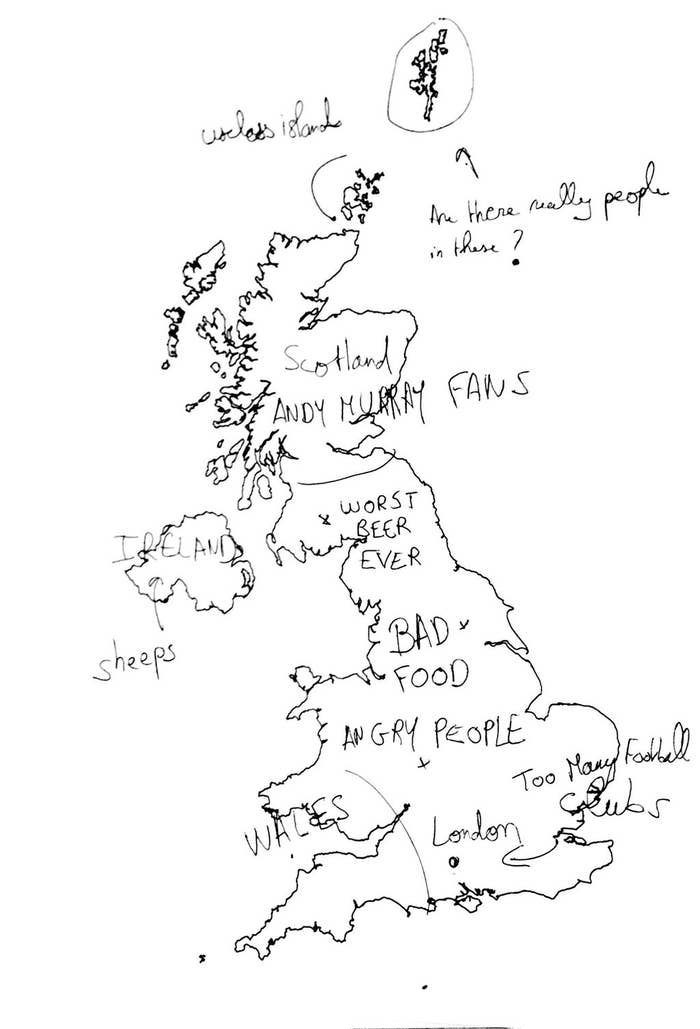 useless islands
Are there really people
in these ?
Scotland
ANDY MURRAY FANS
WORST
BEER
EVER
IRELAND
sheeps
BAD
FOOD
ANGRY PEOPLE
Too Many Football
Clubs
WALES
London